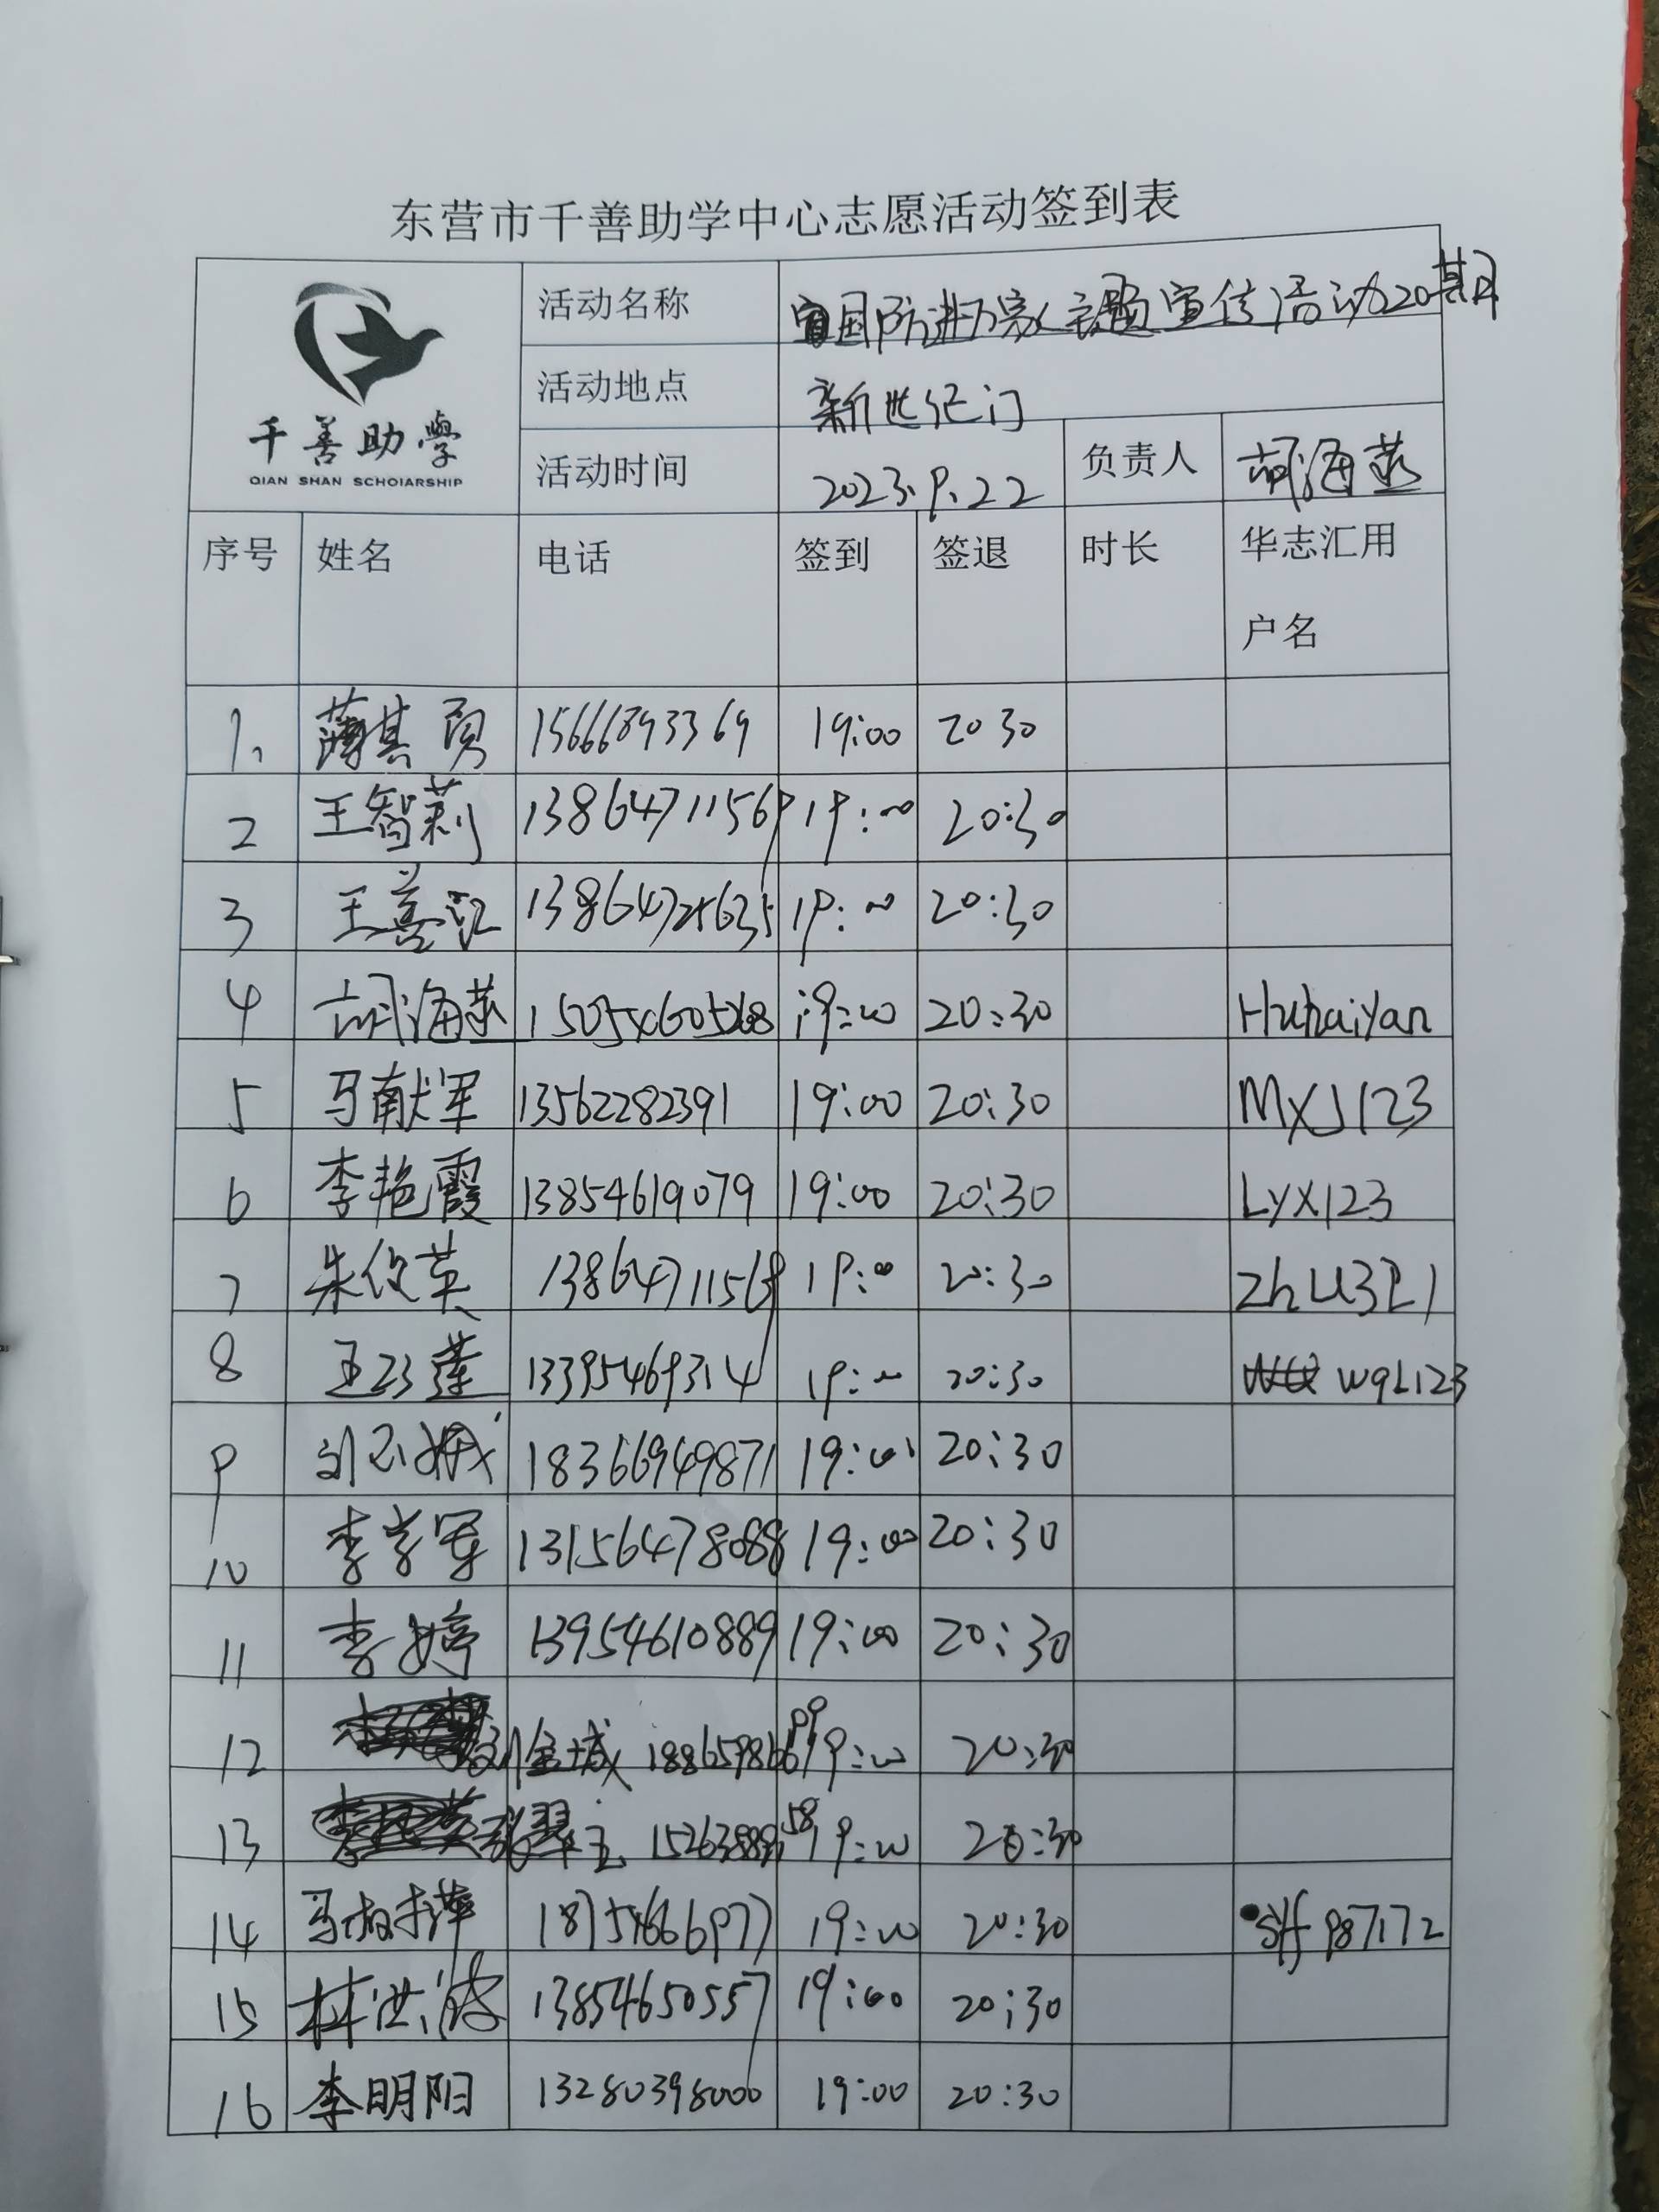 东营市千善助学中心志愿活动签到表
千善助學
QIAN SHAN SCHOIARSHIP
活动名称 国防进万家主题宣传活动20期
活动地点 新世纪门
活动时间 2023.9.22 负责人 胡海燕
序号 姓名 电话 签到 签退 时长 华志汇用户名
1、 薄其勇 15666893369 19:00 20 30
2 王智莉 13864711569 19:00 20:30
3 王善 19:00 20:30
4 胡海燕 19:00 20:30 Huhaiyan
5 马献军 13562282391 19:00 20:30 MXJ123
6 李艳霞 13854619079 19:00 20:30 LyX123
7 朱俊英 13864711569 19:00 20:30 Zhu321
8 王巧莲 13395469314 19:00 20:30 wqL123
9 刘 18366949871 19:00 20:30
10 李学军 13156478088 19:00 20:30
11 李婷 13954610889 19:00 20:30
12 刘金城 19:00 20:30
13 翠玉 19:00 20:30
14 马 萍 19:00 20:30 987172
15 林洪波 13854650557 19:00 20:30
16 李明阳 13280398000 19:00 20:30